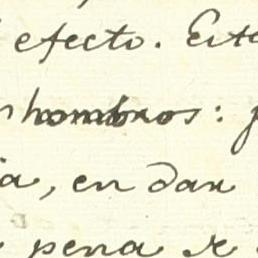 efecto. Esta
hombros:
a, en dar
pena